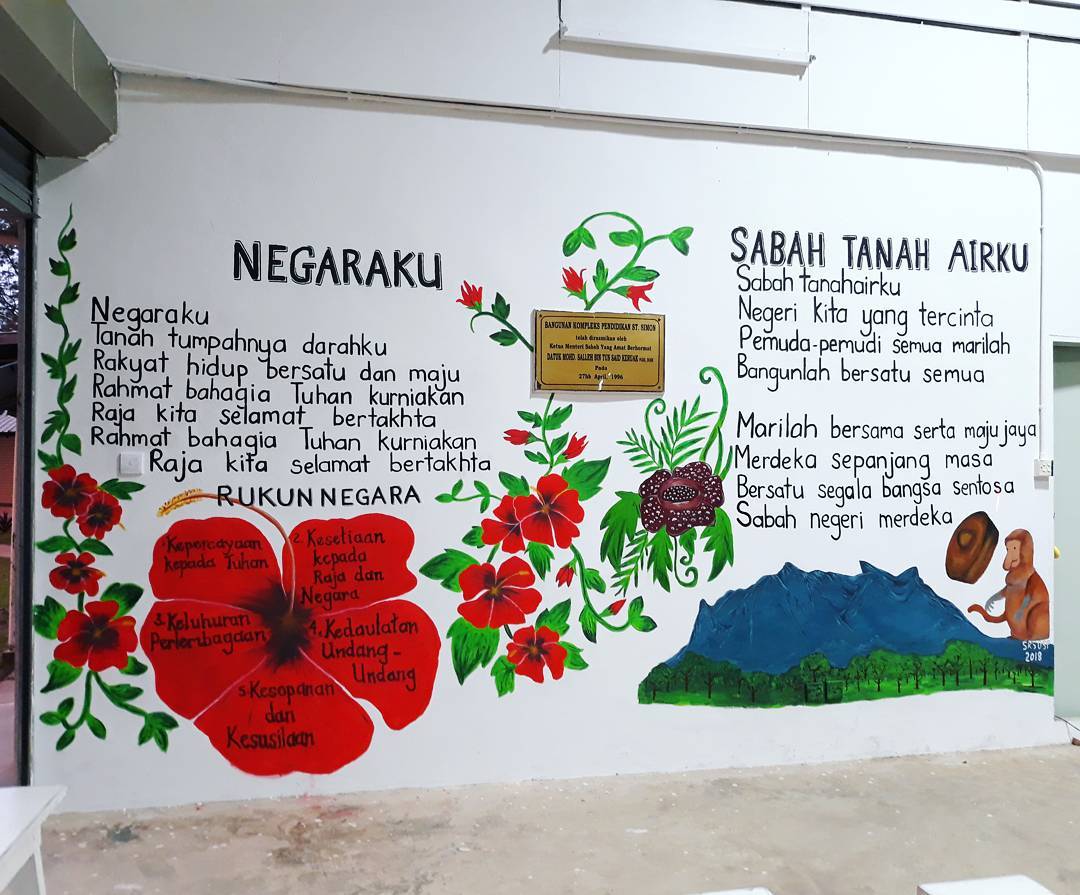 NEGARAKU
Negaraku
Tanah tumpahnya darahku
Rakyat hidup bersatu dan maju
Rahmat bahagia Tuhan kurniakan
Raja kita selamat bertakhta
Rahmat bahagia Tuhan kurniakan
Raja kita selamat bertakhta
RUKUN NEGARA
1. Kepercayaan
kepada Tuhan
2. Kesetiaan
kepada
Raja dan
Negara
3. Keluhuran
Perlembagaan
4. Kedaulatan
Undang-
Undang
5. Kesopanan
dan
Kesusilaan
BANGUNAN KOMPLEKS PENDIDIKAN ST. SIMON
telah dirasmikan oleh
Ketua Menteri Sabah Yang Amat Berhormat
DATUK MOHD. SALLEH BIN TUN SAID KERUAK
Pada
27hb April, 1996
SABAH TANAH AIRKU
Sabah tanahairku
Negeri kita yang tercinta
Pemuda-pemudi semua marilah
Bangunlah bersatu semua
Marilah bersama serta maju jaya
Merdeka sepanjang masa
Bersatu segala bangsa sentosa
Sabah negeri merdeka
2018